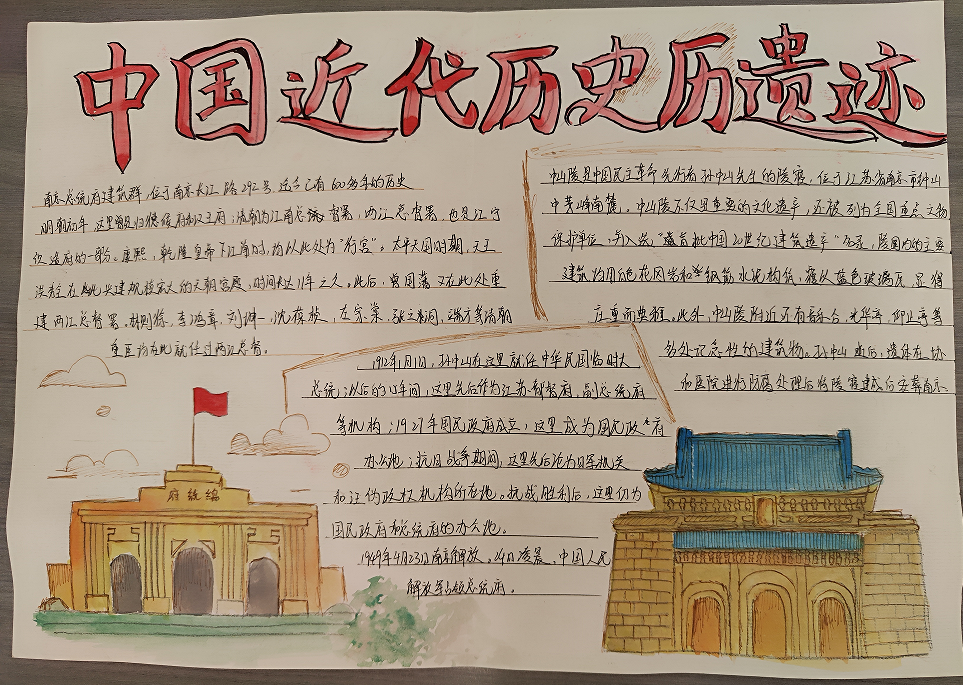 中国近代历史历遗迹
南京总统府建筑群,位于南京长江路292号,迄今已有600多年的历史
明朝初年,这里曾是归德侯府和汉王府;清朝为江南总督署,两江总督署,也是江宁
织造府的一部分。康熙,乾隆皇帝下江南时,均以此处为"行宫"。太平天国时期,天王
洪秀全在此兴建规模宏大的天朝宫殿,时间长达11年之久。此后,曾国藩又在此处重
建两江总督署。林则徐,李鸿章,刘坤一,沈葆桢,左宗棠,张之洞,端方等清朝
重臣均在此就任过两江总督。
1912年1月1日,孙中山在这里就任中华民国临时大
总统;以后的15年间,这里先后作为江苏都督府,副总统府
等机构;1927年国民政府成立,这里成为国民政府
办公地;抗日战争期间,这里先后沦为日军机关
和汪伪政权机构所在地。抗战胜利后,这里仍为
国民政府和总统府的办公地。
1949年4月23日南京解放。24日凌晨,中国人民
解放军占领总统府。
中山陵是中国民主革命先行者孙中山先生的陵寝,位于江苏省南京市钟山
中茅峰南麓。中山陵不仅是重要的文化遗产,还被列为全国重点文物
保护单位,并入选"首批中国20世纪建筑遗产"名录,陵园内的主要
建筑均用花岗岩和钢筋水泥构筑,覆以蓝色玻璃瓦,显得
庄重而典雅。此外,中山陵附近还有音乐台,光华亭,仰止亭等
多处纪念性的建筑物。孙中山逝后,遗体在协
和医院进行防腐处理后将陵寝建成后安葬南京
府統總